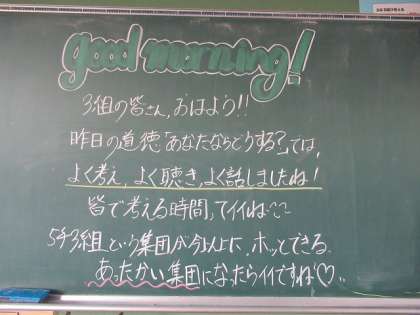 good morning!
3組の皆さん、おはよう!!
昨日の道徳「あなたならどうする?」では、
よく考え、よく聴き、よく話しましたね!
皆で考える時間、てイイね
5年3組、という集団が今以上に、ホッとできる
あったかい集団になったらイイですね♡..